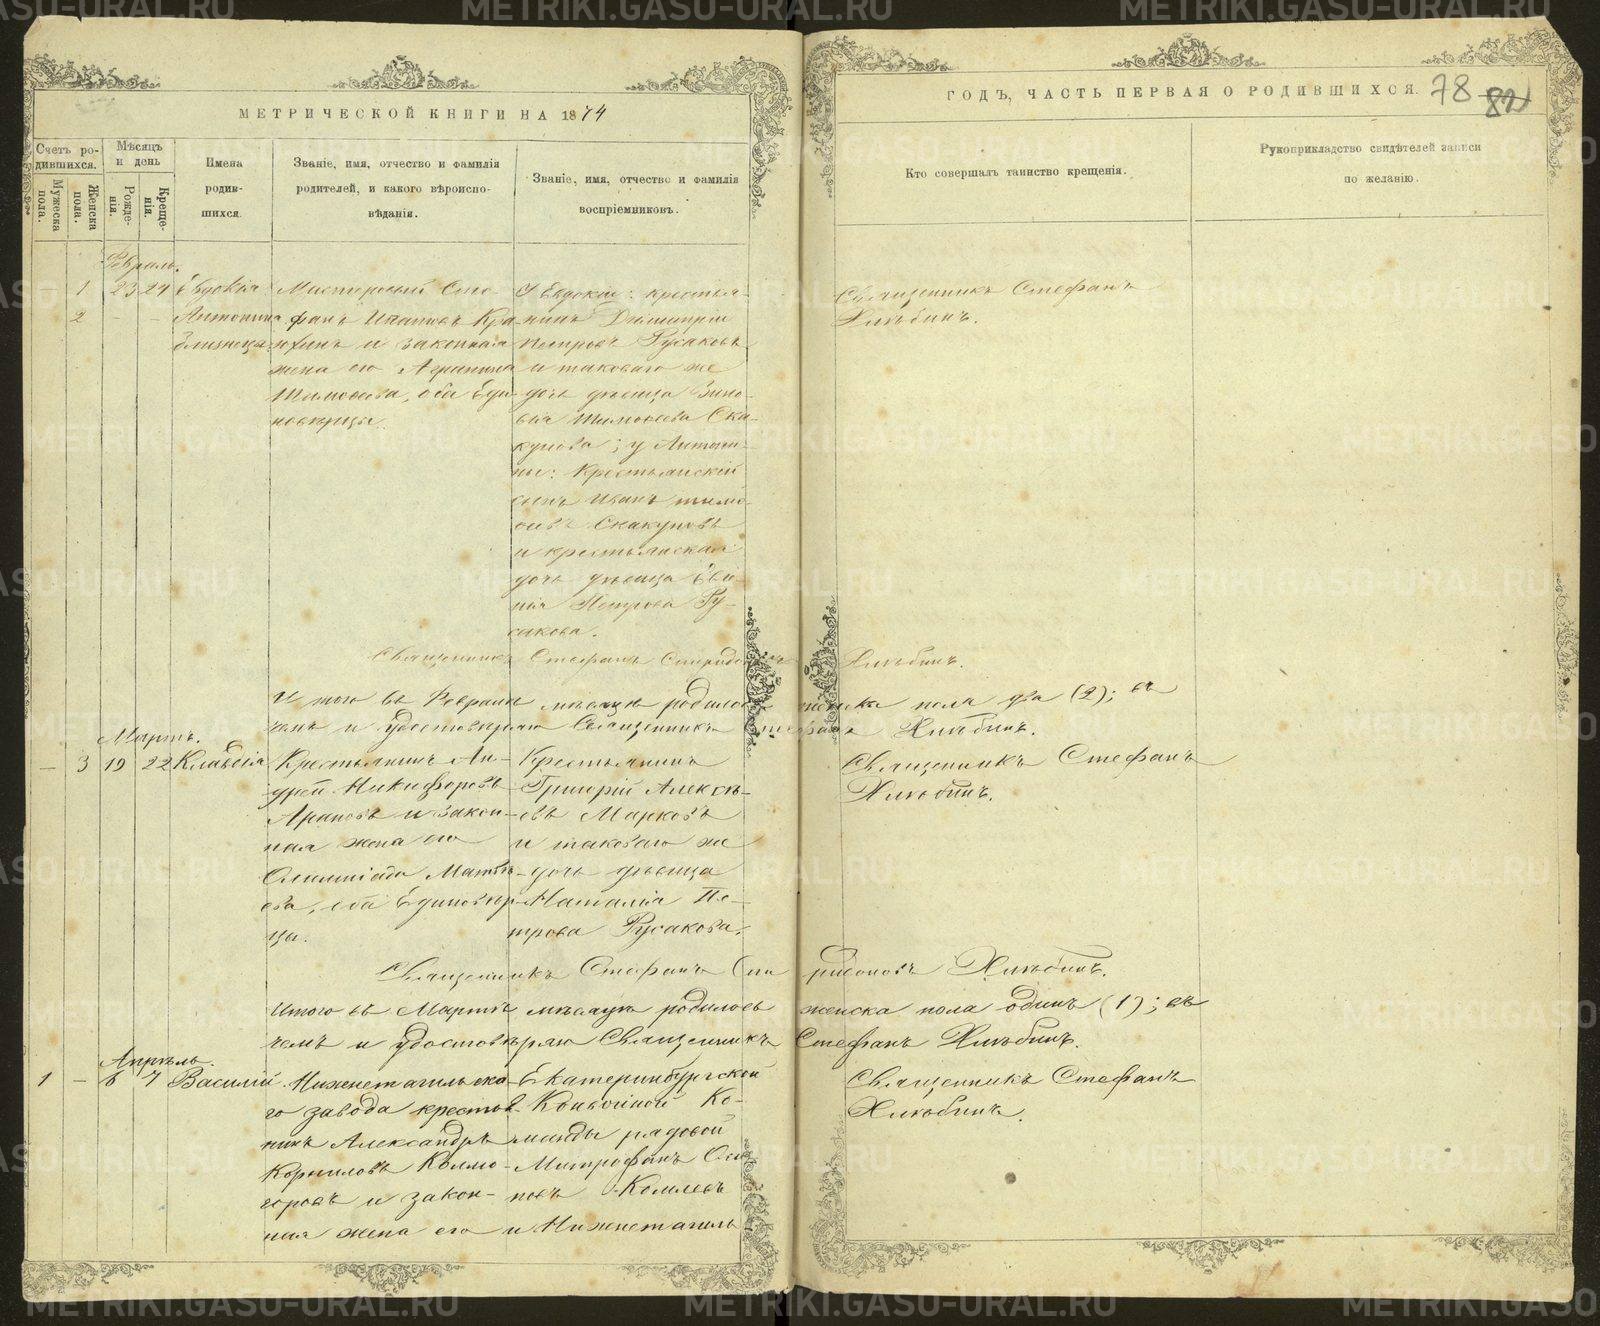 МЕТРИЧЕСКОЙ КНИГИ НА 1874
ГОДЪ, ЧАСТЬ ПЕРВАЯ О РОДИВШИХСЯ.
78
82
Счетъ ро-
дившихся.
Мужеска
пола.
Женска
пола.
Мѣсяцъ
и день
Рожде-
нія.
Креще-
нія.
Имена
родив-
шихся.
Званіе, имя, отчество и фамилія
родителей, и какого вѣроиспо-
вѣданія.
Званіе, имя, отчество и фамилія
воспріемниковъ.
Кто совершалъ таинство крещенія.
Рукоприкладство свидѣтелей записи
по желанію.
Февраль.
— 1 23 24 Евдокія
2 — — Антонина
близнецы
Мастеровый Сте-
фанъ Ипатовъ Кра-
юхинъ и законная
жена его Агрипина
Тимофеева, оба Еди-
новѣрцы.
У Евдокіи: крестья-
нинъ Димитрій
Петровъ Русаковъ
и таковаго же
дочь дѣвица Зино-
вія Тимофеева Ска-
кунова; у Антони-
ны: Крестьянскій
сынъ Иванъ Тимо-
феевъ Скакуновъ
и крестьянская
дочь дѣвица
Петрова Ру-
сакова.
Священникъ Стефанъ
Хлѣбинъ.
Священникъ Стефанъ Спиридоновъ Хлѣбинъ.
Итого въ Февралѣ мѣсяцѣ родилось женска пола два (2); въ
чемъ и удостовѣряю Священникъ Стефанъ Хлѣбинъ.
Мартъ.
— 3 19 22 Клавдія
Крестьянинъ Ан-
дрей Никифоровъ
Араповъ и закон-
ная жена его
Олимпіада Матвѣ-
ева, оба Единовѣр-
цы.
Крестьянинъ
Григорій Алексѣ-
евъ Марковъ
и таковаго же
дочь дѣвица
Наталія Пе-
трова Русакова.
Священникъ Стефанъ
Хлѣбинъ.
Священникъ Стефанъ Спиридоновъ Хлѣбинъ.
Итого въ Мартѣ мѣсяцѣ родилось женска пола одинъ (1); въ
чемъ и удостовѣряю Священникъ Стефанъ Хлѣбинъ.
Апрѣль.
1 — 6 7 Василій
Нижнетагильска-
го завода крестья-
нинъ Александръ
Корниловъ Колмо-
горовъ и закон-
ная жена его
Екатеринбургской
Конвойной Ко-
манды рядовой
Митрофанъ
Комлевъ
и Нижнетагиль-
Священникъ Стефанъ
Хлѣбинъ.
METRIKI.GASU-URAL.RU